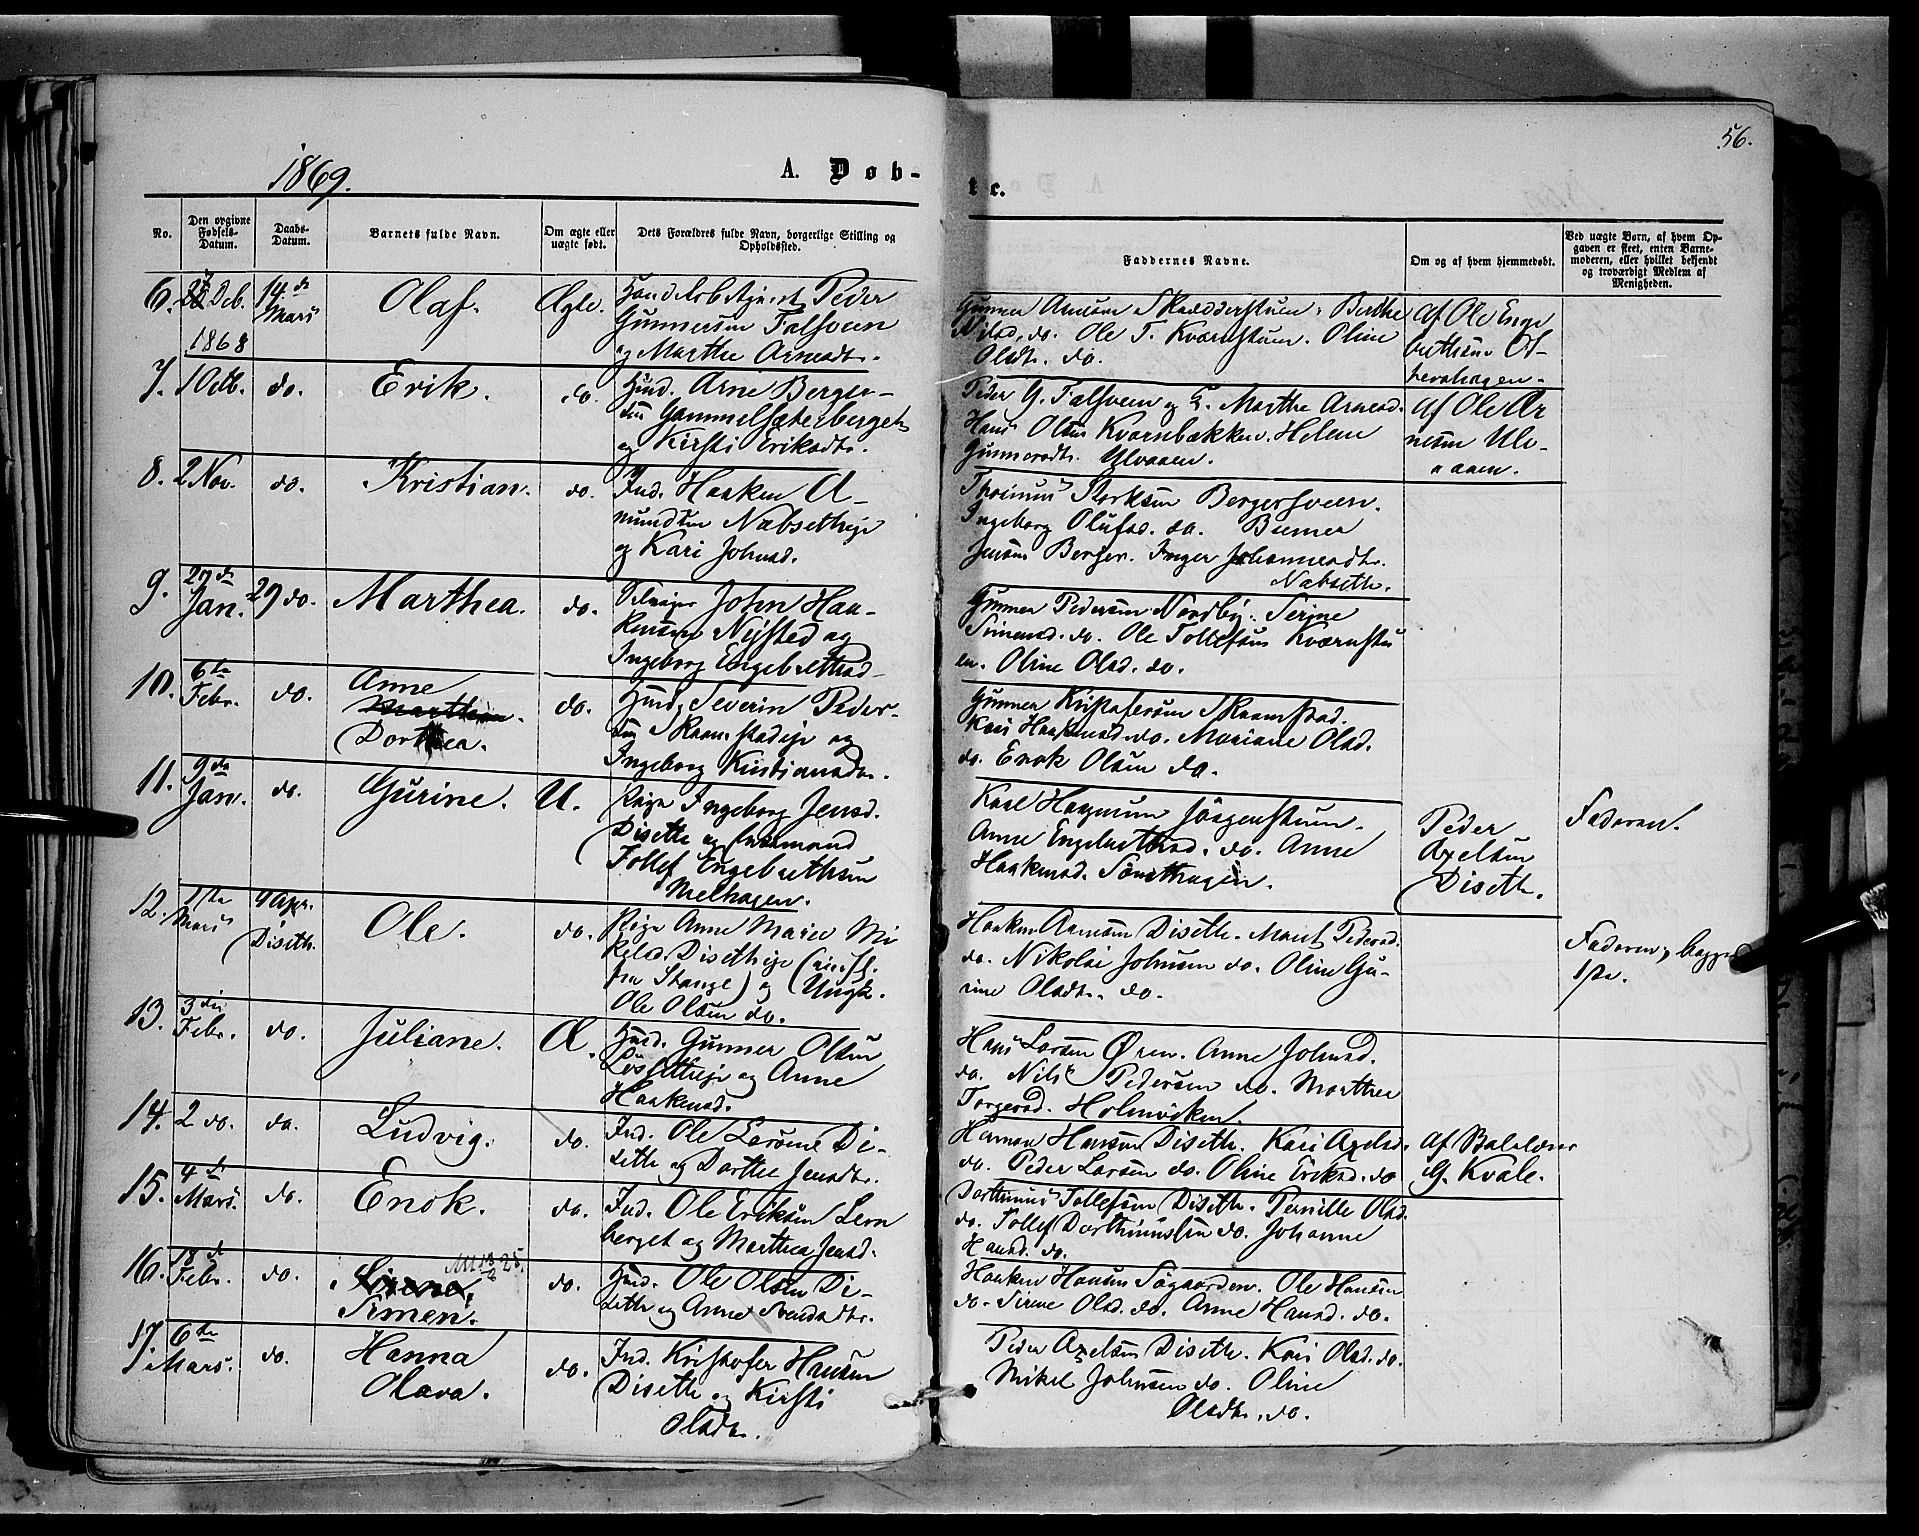 1869.
A. Døb-
te.
56.
No.
Den opgivne Fødsels-Datum.
Daabs-Datum.
Barnets fulde Navn.
Om ægte eller uægte født.
Dets Forældres fulde Navn, borgerlige Stilling og Opholdssted.
Faddernes Navne.
Om og af hvem hjemmedøbt.
Ved uægte Børn, af hvem Opgaven er skeet, enten Barnemoderen, eller hvilket bekjendt og troværdigt Medlem af Menigheden.
6. Deb. 1868
14 de Mars
Olaf.
Ægte.
Peder
Gunnersen Falsveen
og Marthe Arnesdtr.
Gunner Arnesen Skrædderstuen. Berthe
Nilsd. do. Ole T. Kværnstuen. Oline
Olsdtr. do.
Af Ole Enge
brethsen
7. 1 Octb.
do.
Erik.
do.
Husd. Arne Berger-
sen Gammelsæterberget
og Kirsti Eriksdtr.
Peder G. Falsveen og Marthe Arnesd.
Hans Olsen Kværnbækken. Helene
Gunnersdtr. Ulvaaen.
Af Ole Ar
nesen Ulv-
aaen.
8. 2 Nov.
do.
Kristian.
do.
Ind. Haaken A-
mundsen Næbsetheje
og Kari Johnsd.
Størksen Bergersveen.
Ingeborg Olufsd. do.
Jensen Berger. Inger Johannesdtr.
Næbseth.
9. 27 de Jan.
29 do.
Marthea.
do.
John Haa-
kensen Nysted og
Ingeborg Engebrethsd
Gunner Pedersen Nordby. Serine
Simensd. do. Ole Tollefsen Kværnstu
en. Oline Olsd. do.
10. 6 te Febr.
do.
Anne
Dorthea.
do.
Husd. Severin Peder-
sen Skramstadeje og
Ingeborg Kristiansdr.
Gunner Kristofersen Skramstad.
Kari Haakensd. do. Mariane Olsd.
do. Enok Olsen do.
11. 9 de Jan.
do.
Gurine.
U.
Pige Ingeborg Jensd.
Diseth og
Tollef Engebrethsen
Melhagen.
Karl Jørgenstuen.
Anne Engebrethsd. do. Anne
Haakensd. Sønsthagen.
Peder
Axelsen
Diseth.
Faderen.
12. 1 ste Mars
9 Apr. Diseth.
Ole.
do.
Pige Anne Marie Mi
kelsd. Disetheje (
fra Stange) og Ungk.
Ole Olsen do.
Haaken Arnesen Diseth. Marit Pedersd.
do. Nikolai Johnsen do. Oline Gu-
rine Olsdtr. do.
Faderen, begges
1ste.
13. 3 die Febr.
do.
Juliane.
Æ.
Husd. Gunner Olsen
Løssetheje og Anne
Haakensd.
Hans Larsen Øren. Anne Johnsd.
do. Nils Pedersen do. Marthea
Torgersd. Holmviken.
14. 2 do.
do.
Ludvig.
do.
Ind. Ole Larsen Di-
seth og Dorthe Jensdtr.
Herman Hansen Diseth. Kari Axelsd.
do. Peder Larsen do. Oline Eriksd. do
Af
G. Kvale.
15. 4 de Mars.
do.
Enok.
do.
Ind. Ole Eriksen Lern
berget og Marthea Jensd.
Dorthinus Tollefsen Diseth. Pernille Olsd.
do. Tollef Dorthinussen do. Johanne
Hansd. do.
16. 18 de Febr.
do.
Simen.
do.
Husd. Ole Olsen Di-
seth og Anne Svendsdtr.
Haaken Hansen Søgaarden. Ole Hansen
do. Sirene Olsd. do. Anne Hansd. do.
17. 6 te Mars.
do.
Hanna
Olava.
do.
Ind. Kristofer Hansen
Diseth og Kirsti
Olsdr.
Peder Axelsen Diseth. Kari Olsd. do.
Mikel Johnsen do. Oline
Olsdtr. do.